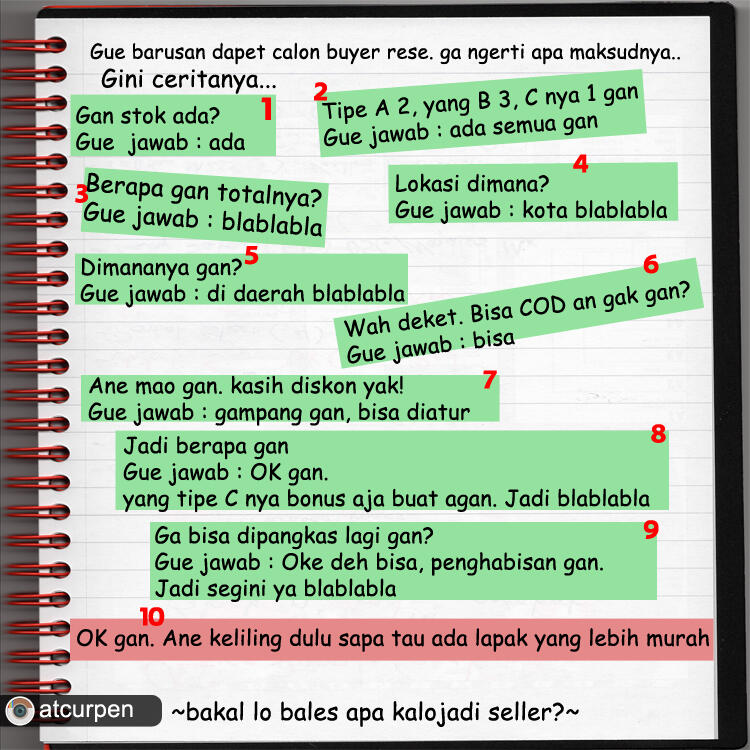 Gue barusan dapet calon buyer rese. ga ngerti apa maksudnya..
Gini ceritanya...
1
Gan stok ada?
Gue jawab : ada
2
Tipe A 2, yang B 3, C nya 1 gan
Gue jawab : ada semua gan
3
Berapa gan totalnya?
Gue jawab : blablabla
4
Lokasi dimana?
Gue jawab : kota blablabla
5
Dimananya gan?
Gue jawab : di daerah blablabla
6
Wah deket. Bisa COD an gak gan?
Gue jawab : bisa
7
Ane mao gan. kasih diskon yak!
Gue jawab : gampang gan, bisa diatur
8
Jadi berapa gan
Gue jawab : OK gan.
yang tipe C nya bonus aja buat agan. Jadi blablabla
9
Ga bisa dipangkas lagi gan?
Gue jawab : Oke deh bisa, penghabisan gan.
Jadi segini ya blablabla
10
OK gan. Ane keliling dulu sapa tau ada lapak yang lebih murah
atcurpen
~bakal lo bales apa kalojadi seller?~